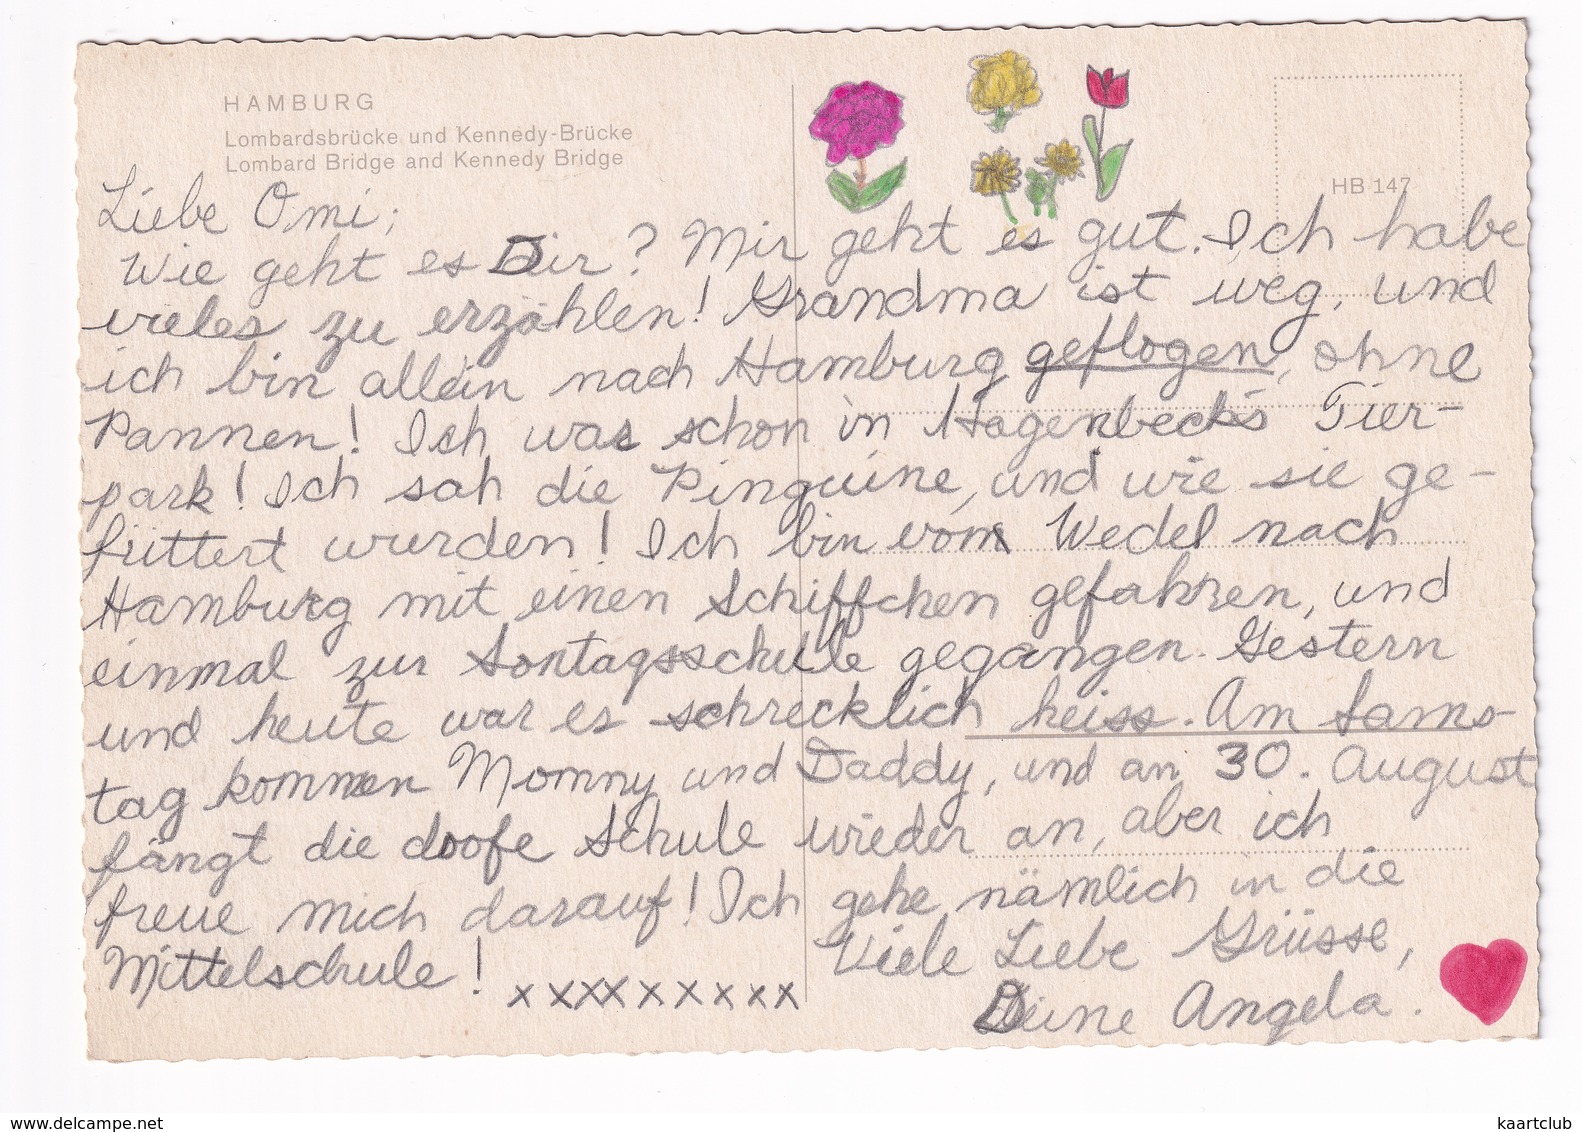 HAMBURG
Lombardsbrücke und Kennedy-Brücke
Lombard Bridge and Kennedy Bridge
HB 147
Liebe Omi,
Wie geht es Dir? Mir geht es gut. Ich habe
vieles zu erzählen! Grandma ist weg, und
ich bin allein nach Hamburg geflogen, ohne
Pannen! Ich was schon in Hagenbeck's Tier-
park! Ich sah die Pinguine, und wie sie ge-
füttert wurden! Ich bin von Wedel nach
Hamburg mit einen Schiffchen gefahren, und
einmal zur Sontagsschule gegangen. Gestern
und heute war es schrecklich heiss. Am Sams-
tag kommen Mommy und Daddy, und an 30. August
fängt die doofe Schule wieder an, aber ich
freue mich darauf! Ich gehe nämlich in die
Mittelschule! xxxxxxxxx Viele Liebe Grüsse,
Deine Angela.
www.delcampe.net
kaartclub